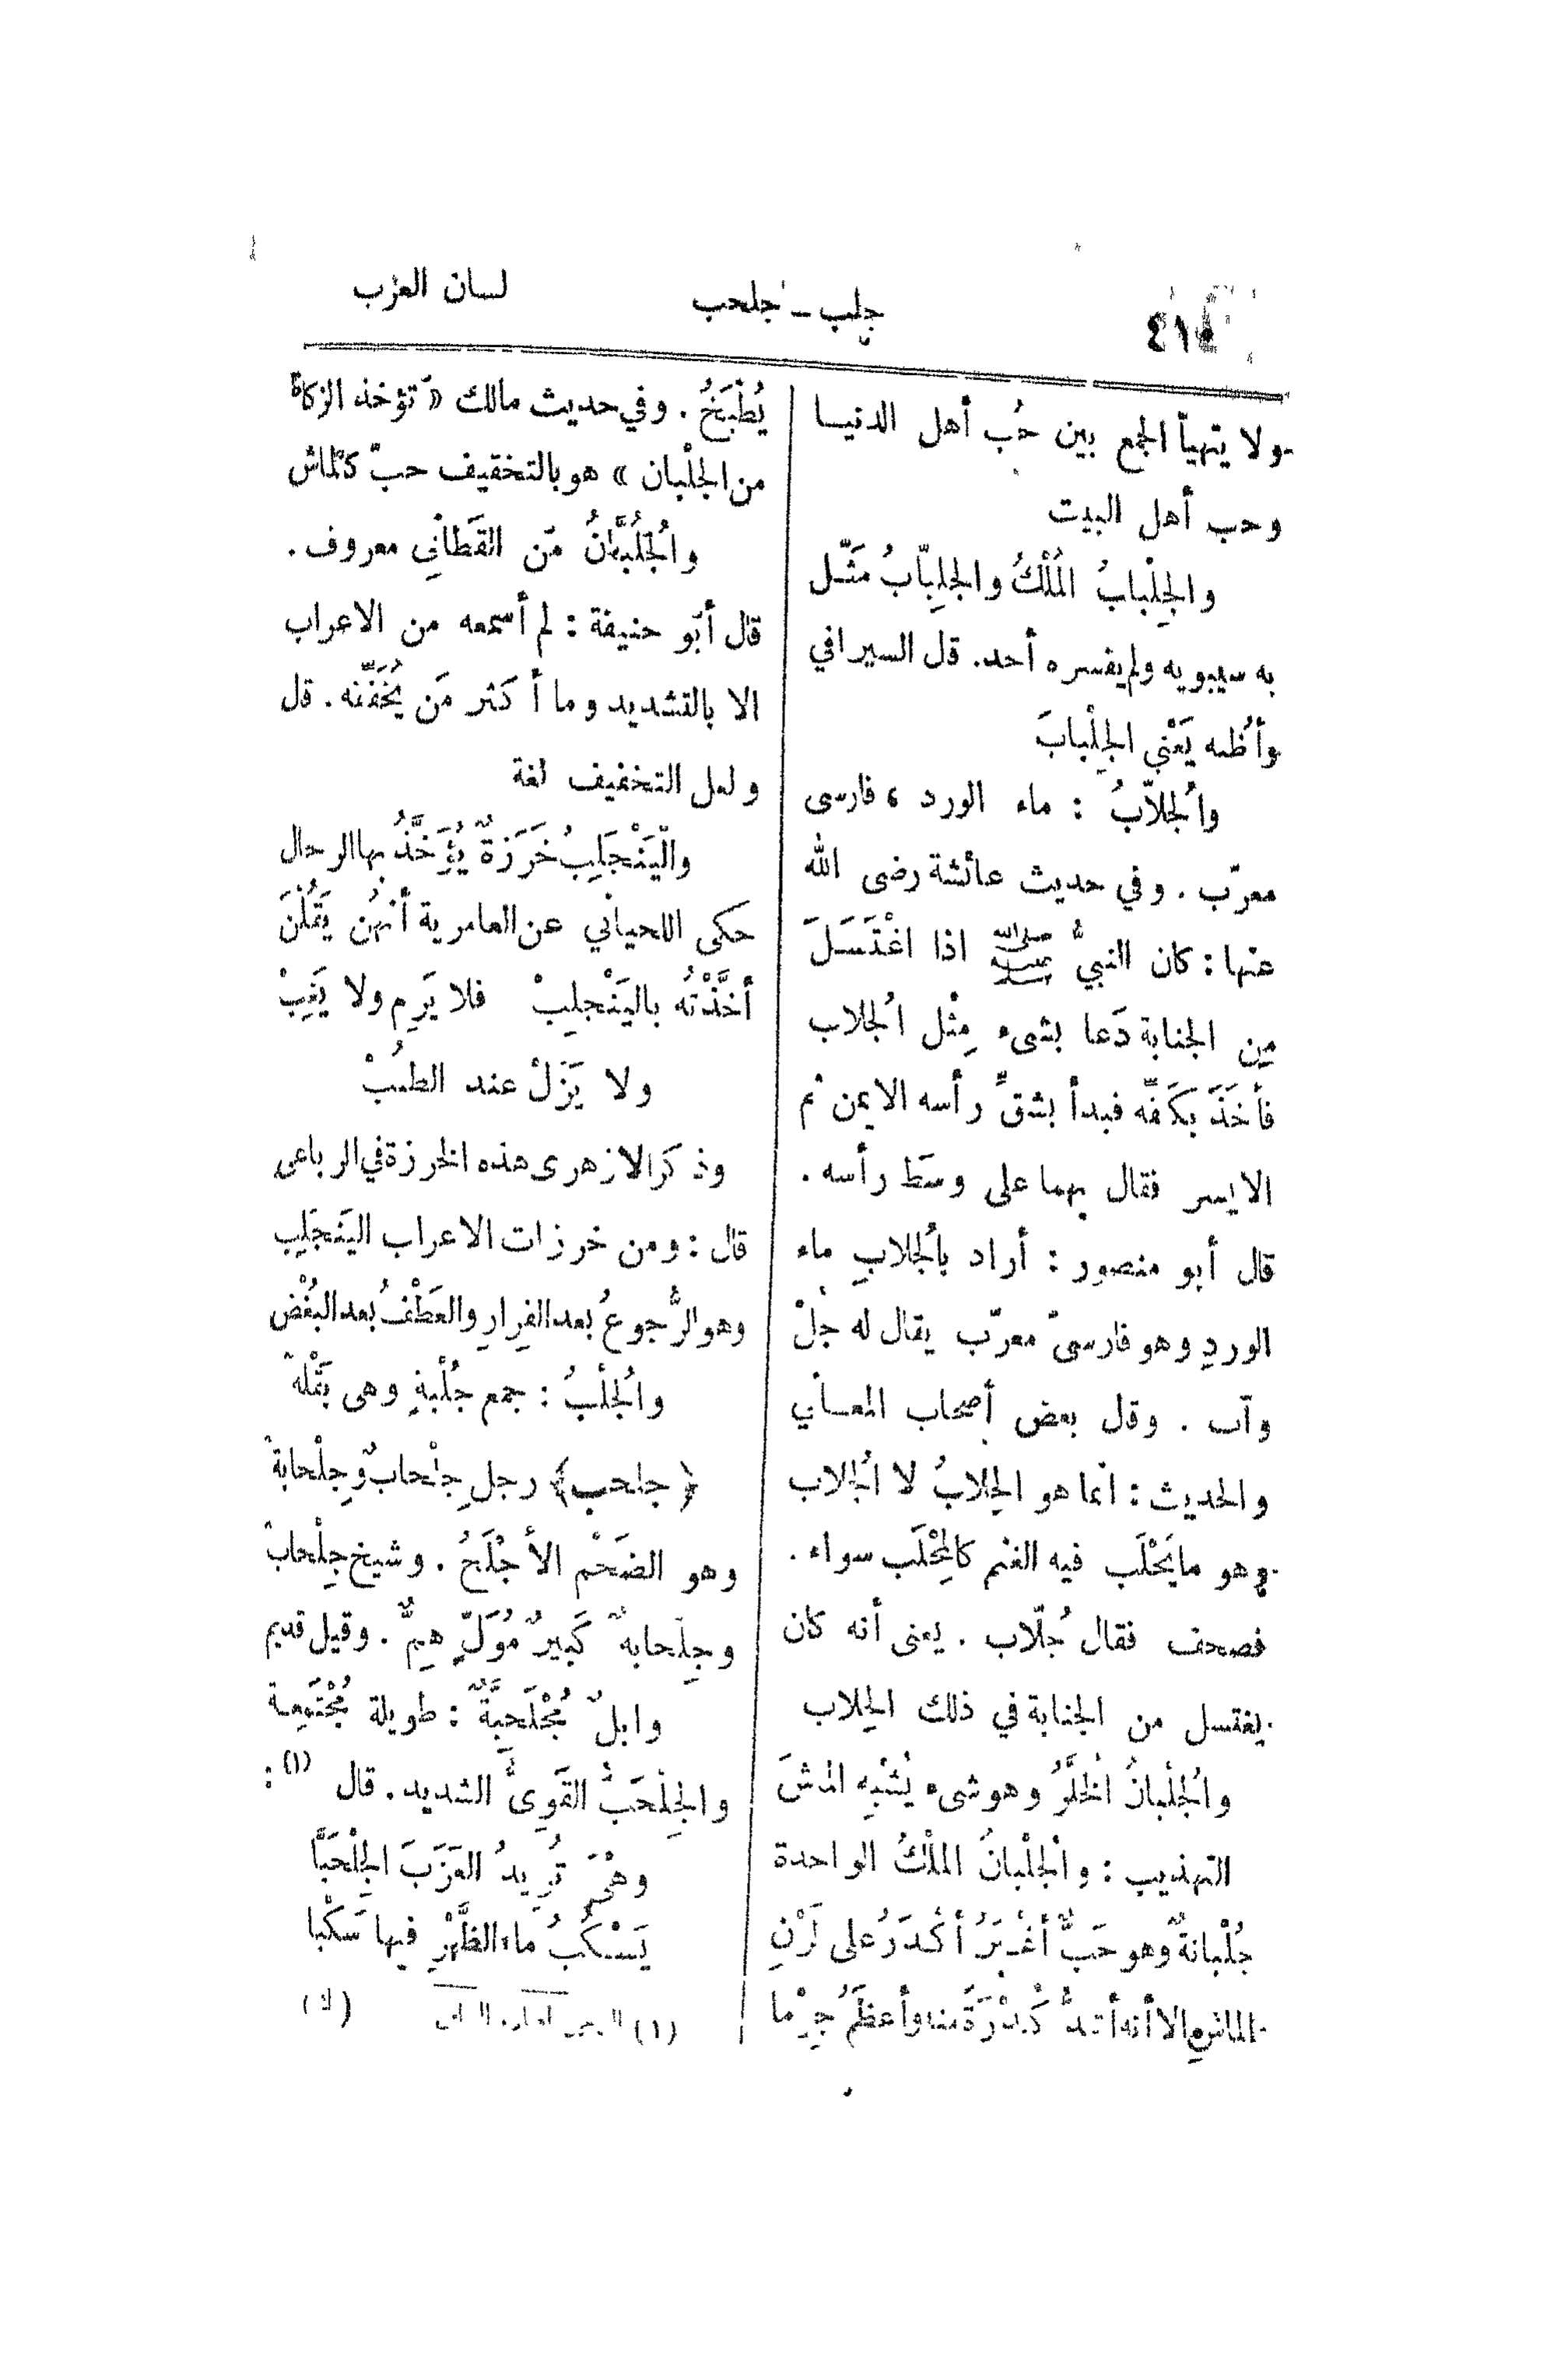 ٤١٥
جلب ــ جلحب
لسان العرب
ولا يتهيأ الجمع بين حُب أهل الدنيـا
وحب أهل البيت
والجِلْبابُ المُلْكُ والجِلِبّابُ مَثّـل
به سيبويه ولم يفسره أحد. قل السيرافي
وأظنه يَعْني الجِلْبابَ
والجُلاّبُ : ماء الورد ، فارسى
معرّب . وفي حديث عائشة رضى الله
عنها : كان النبيُّ ﷺ اذا اغْتَسَلَ
مِن الجنابة دَعا بشىء مِثْل الجُلاب
فأخَذَ بكَفِّه فبدأ بشقِّ رأسه الايمن ثم
الايسر فقال بهما على وسَط رأسه .
قال أبو منصور : أراد بالجُلابِ ماء
الوردِ وهو فارسىّ معرّب يقال له جُلْ
وآب . وقل بعض أصحاب المعـاني
والحديث : انما هو الحِلابُ لا الجُلاب
وهو ما يَحْلَب فيه الغنم كالمِحْلَب سواء .
فصحف فقال جُلّاب . يعنى أنه كان
يغتسل من الجنابة في ذلك الحِلاب
والجُلْبانُ الخُلَّرُ وهو شىء يُشْبِه الماشَ
التهذيب : والجُلْبانُ المُلْكُ الواحدة
جُلْبانةٌ وهو حَبٌّ أغْـبَرُ أكْدَرُ على لَوْنِ
الماشِ الا أنه أشدُّ كُدْرَةً منه وأعظَمُ جِرْما
يُطْبَخُ . وفي حديث مالك « تؤخذ الزكاة
من الجلْبان » هو بالتخفيف حبّ كالماش
والجُلُبَّانُ من القَطانِي معروف .
قال أبو حنيفة : لم أسمعه من الاعراب
الا بالتشديد وما أكثر مَن يُخَفِّفه . قل
ولعل التخفيف لغة
واليَنْجَلِبُ خَرَزَةٌ يُؤَخَّذُ بها الرجال
حكى اللحياني عن العامرية أنهُن يَقُلْنَ
أخَّذْتُه باليَنْجلِبْ فلا يَرِم ولا يَغِبْ
ولا يَزَلْ عند الطنُبْ
وذكر الازهرى هذه الخرزة في الرباعى
قال : ومن خرزات الاعراب اليَنجَلِب
وهو الرُّجوعُ بعد الفِرارِ والعَطْفُ بعد البُغْض
والجُلْبُ : جمع جُلْبةٍ وهى بَقْلة
﴿ جلحب ﴾ رجل جِلْحابٌ وجِلْحابةٌ
وهو الضَخْم الأجْلَحُ . وشيخ جِلْحابٌ
وجِلْحابةٌ كَبيرٌ مُوَلٍّ هِمٌّ . وقيل قديم
وابلٌ مُجْلَحِبَّةٌ : طويلة مُجْتَمِعـة
والجِلْحَبُّ القَوِىُّ الشديد . قال (١) :
وهْيَ تُريدُ العَزَبَ الجِلْحَبَّا
يَسْكُبُ ماء الظَّهْرِ فيها سَكْبا
(١)
(ك)